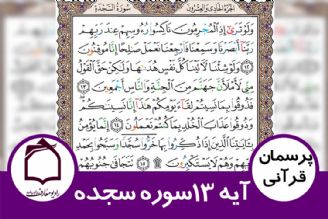 الجزء الحادي والعشرون
سورة السجدة
وَلَوْ تَرَىٰ إِذِ الْمُجْرِمُونَ نَاكِسُوا رُءُوسِهِمْ عِندَ رَبِّهِمْ
رَبَّنَا أَبْصَرْنَا وَسَمِعْنَا فَارْجِعْنَا نَعْمَلْ صَالِحًا إِنَّا مُوقِنُونَ
﴿١٢﴾ وَلَوْ شِئْنَا لَآتَيْنَا كُلَّ نَفْسٍ هُدَاهَا وَلَٰكِنْ حَقَّ الْقَوْلُ
مِنِّي لَأَمْلَأَنَّ جَهَنَّمَ مِنَ الْجِنَّةِ وَالنَّاسِ أَجْمَعِينَ ﴿١٣﴾
فَذُوقُوا بِمَا نَسِيتُمْ لِقَاءَ يَوْمِكُمْ هَٰذَا إِنَّا نَسِينَاكُمْ
وَذُوقُوا عَذَابَ الْخُلْدِ بِمَا كُنتُمْ تَعْمَلُونَ ﴿١٤﴾ إِنَّمَا يُؤْمِنُ
بِآيَاتِنَا الَّذِينَ إِذَا ذُكِّرُوا بِهَا خَرُّوا سُجَّدًا وَسَبَّحُوا بِحَمْدِ
رَبِّهِمْ وَهُمْ لَا يَسْتَكْبِرُونَ ﴿١٥﴾ تَتَجَافَىٰ جُنُوبُهُمْ
پرسمان
قرآنی
آیه ۱۳سوره سجده